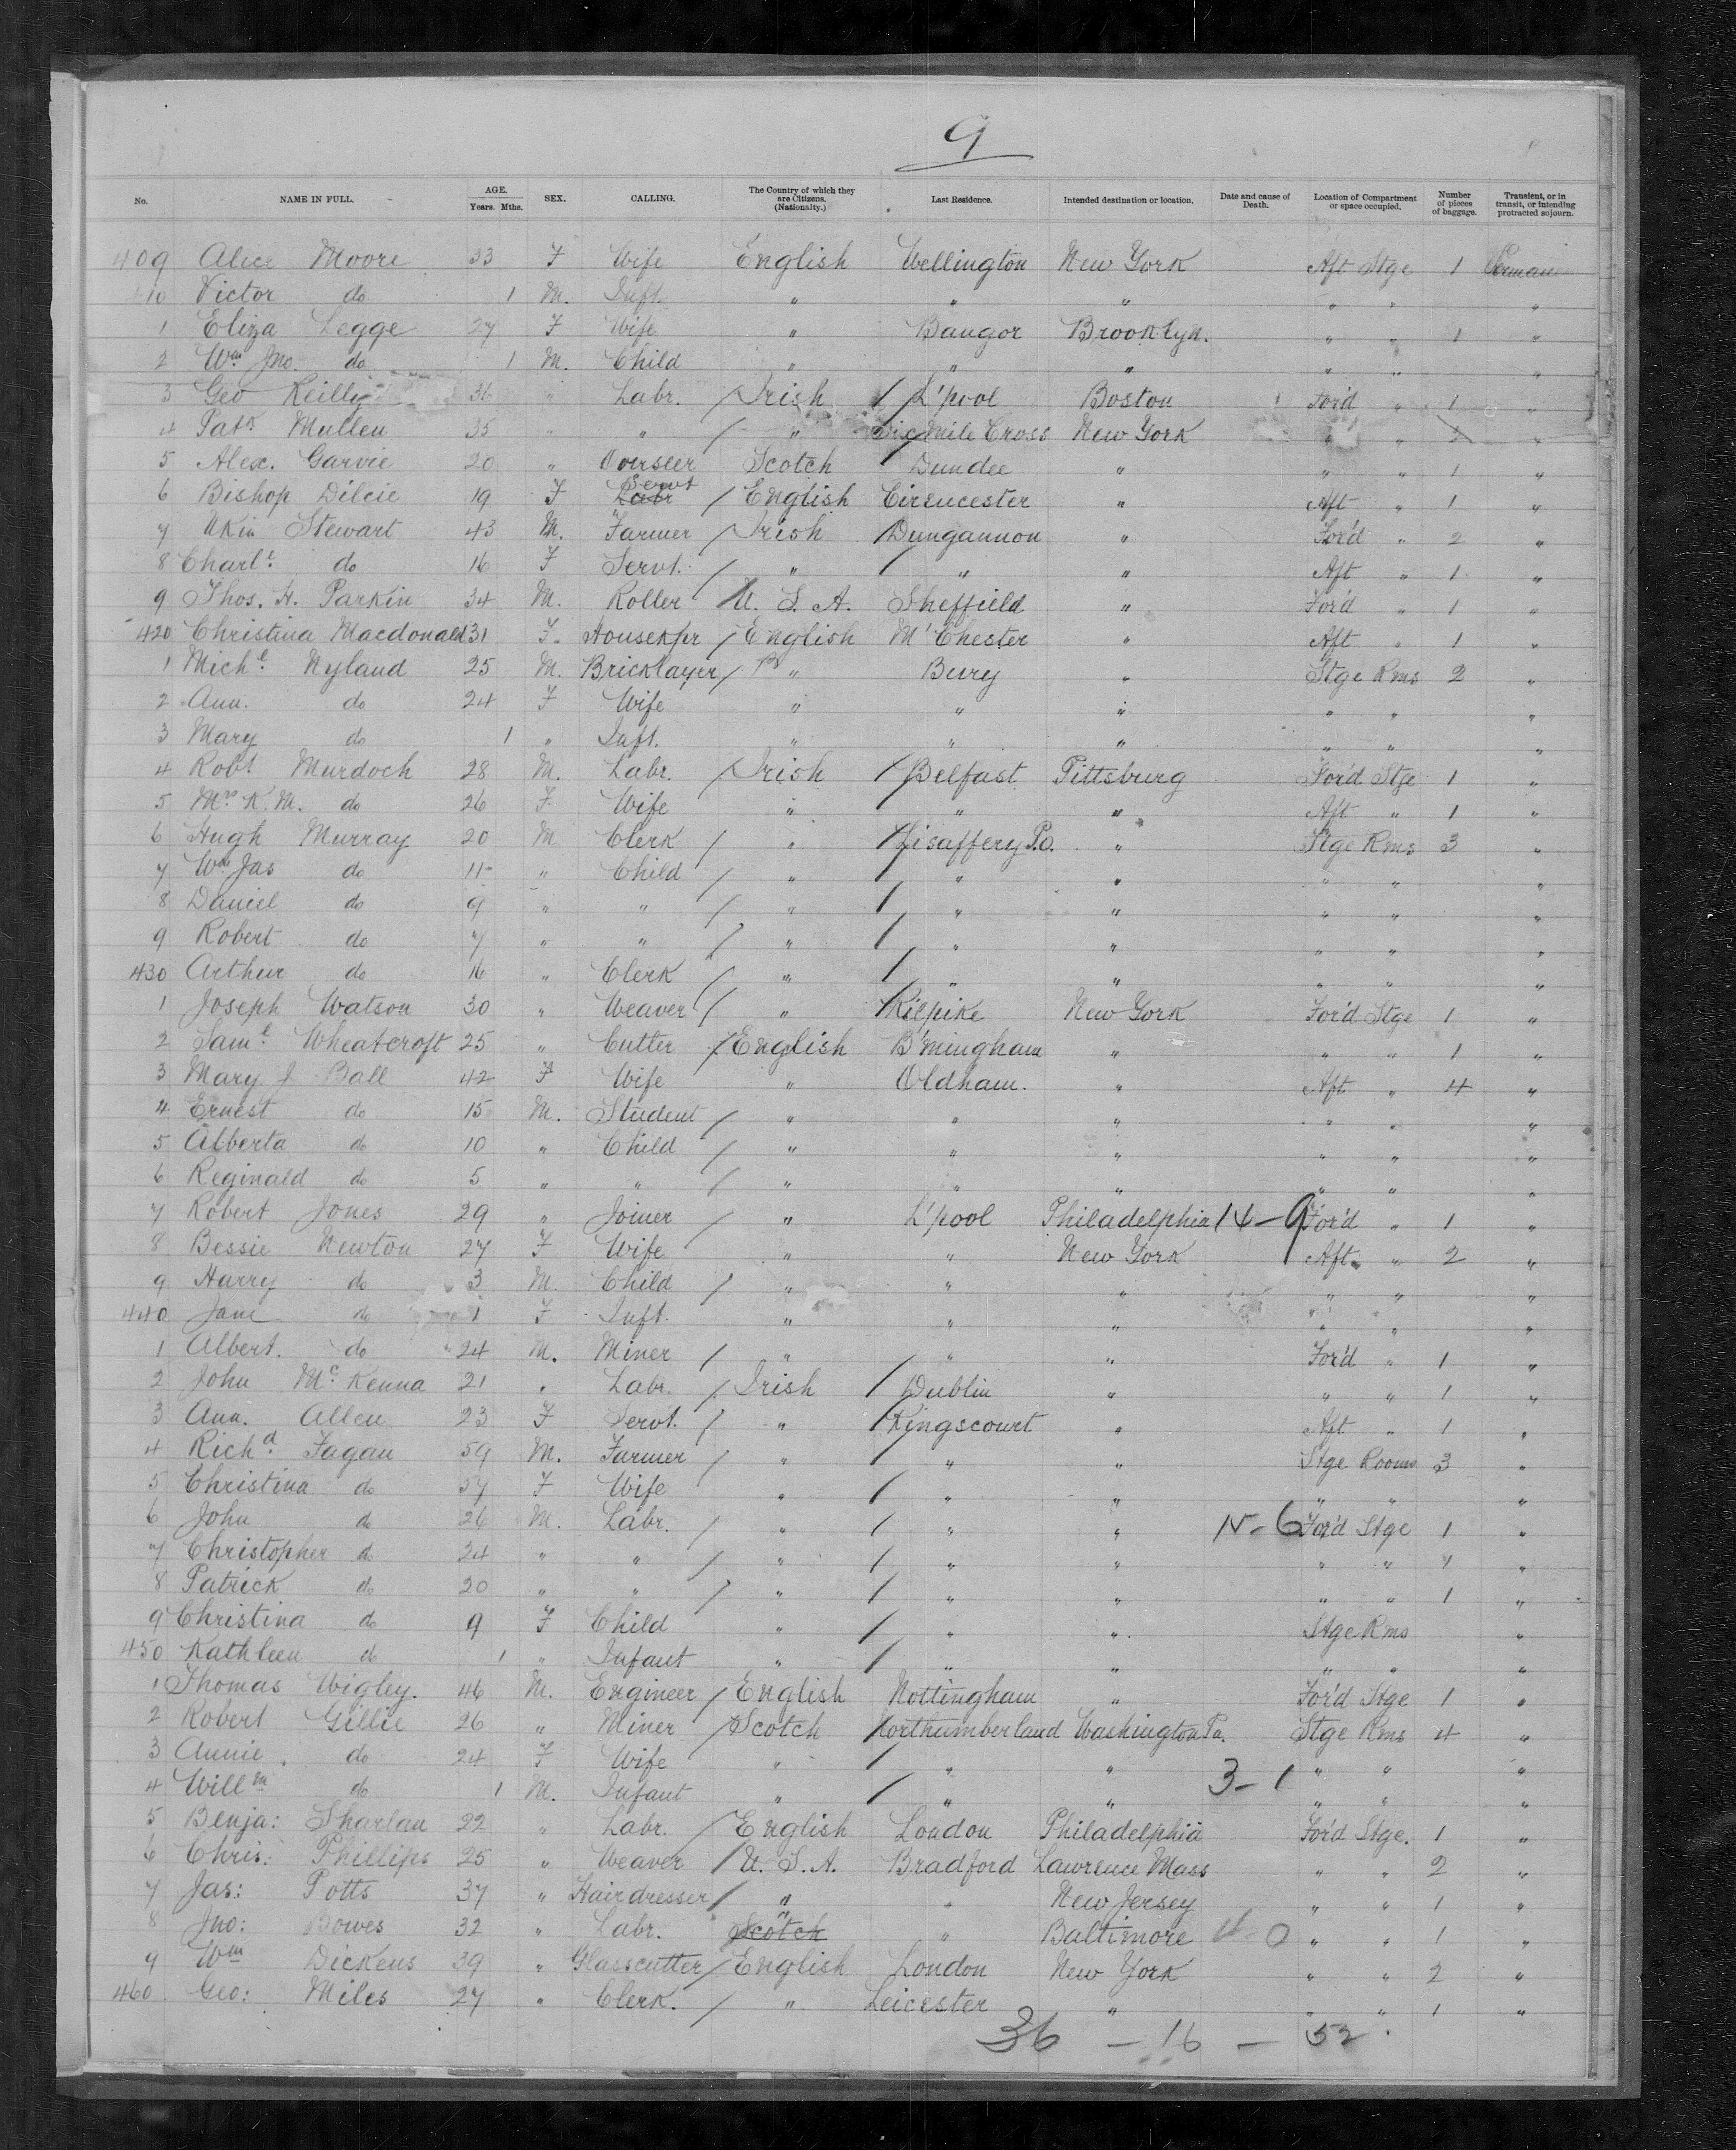 9
No. NAME IN FULL. AGE. Years. Mths. SEX. CALLING. The Country of which they are Citizens. (Nationality.) Last Residence. Intended destination or location. Date and cause of Death. Location of Compartment or space occupied. Number of pieces of baggage. Transient, or in transit, or intending protracted sojourn.
409 Alice Moore 33 F Wife English Wellington New York Aft Stge 1
410 Victor do 1 M. Inft. " " " " " "
1 Eliza Legge 27 F Wife " Bangor Brooklyn. " " 1 "
2 Wm Jno. do 1 M. Child " " " " " "
3 Geo Reilly 36 " Labr. / Irish / L'pool Boston For'd " 1 "
4 Patk Mullen 35 " " / " Mile Cross New York " " 2 "
5 Alex. Garvie 20 " Overseer Scotch Dundee " " " 1 "
6 Bishop Dilcie 19 F Labr Servt / English Cirencester " Aft " 1 "
7 Stewart 43 M. Farmer / Irish / Dungannon " For'd " 2 "
8 Charlt. do 16 F Servt. / " / " " Aft " 1 "
9 Thos. H. Parkin 34 M. Roller / U. S. A. Sheffield " For'd " 1 "
420 Christina Macdonald 31 F. Housekpr / English M'Chester " Aft " 1 "
1 Michl. Nyland 25 M. Bricklayer / " Bury " Stge Rms 2 "
2 Ann. do 24 F Wife " " " " " "
3 Mary do 1 " Inft. " " " " " "
4 Robt Murdoch 28 M. Labr. / Irish / Belfast Pittsburg For'd Stge 1 "
5 Mrs K. M. do 26 F Wife " / " " Aft " 1 "
6 Hugh Murray 20 M Clerk / " / Lisaffery P.O. " Stge Rms 3 "
7 Wm Jas do 11 " Child / " / " " " " "
8 Daniel do 9 " " / " / " " " " "
9 Robert do 7 " " / " / " " " " "
430 Arthur do 16 " Clerk / " / " " " " "
1 Joseph Watson 30 " Weaver / " / Kilpike New York For'd Stge 1 "
2 Saml. Wheatcroft 25 " Cutter / English B'mingham " " " 1 "
3 Mary J Ball 42 F Wife " Oldham. " Aft " 4 "
4 Ernest do 15 M. Student / " " " " " "
5 Alberta do 10 " Child / " " " " " "
6 Reginald do 5 " " / " " " " " "
7 Robert Jones 29 " Joiner / " L'pool Philadelphia 14-9 For'd " 1 "
8 Bessie Newton 27 F Wife " " New York Aft. " 2 "
9 Harry do 3 M. Child / " " " " " "
440 Jane do 1 F Inft. " " " " " "
1 Albert. do 24 M. Miner / " " " For'd " 1 "
2 John McKenna 21 " Labr. / Irish / Dublin " " " 1 "
3 Ann. Allen 23 F Servt. / " / Kingscourt " Aft " 1 "
4 Richd. Fagan 59 M. Farmer / " / " " Stge Rooms 3 "
5 Christina do 57 F Wife " / " " " " "
6 John do 26 M. Labr. / " / " " For'd Stge 1 "
7 Christopher do 24 " " / " / " " " " " "
8 Patrick do 20 " " / " / " " " " 1 "
9 Christina do 9 F Child " / " " Stge Rms "
450 Kathleen do 1 " Infant " / " " " " "
1 Thomas Wigley. 46 M. Engineer / English Nottingham " For'd Stge 1 "
2 Robert Gillie 26 " Miner / Scotch Northumberland Washington Pa. Stge Rms 4 "
3 Annie. do 24 F Wife " / " " " " "
4 Willm do 1 M. Infant " / " " 3-1 " " "
5 Benja: Sharlan 22 " Labr. / English London Philadelphia For'd Stge. 1 "
6 Chris: Phillips 25 " Weaver / U. S. A. Bradford Lawrence Mass " " 2 "
7 Jas: Potts 37 " Hairdresser / " " New Jersey " " 1 "
8 Jno: Bowes 32 " Labr. Scotch " " Baltimore " " 1 "
9 Wm Dickens 39 " Glasscutter / English London New York " " 2 "
460 Geo: Miles 27 " Clerk. / " Leicester " " " 1 "
36 - 16 - 52